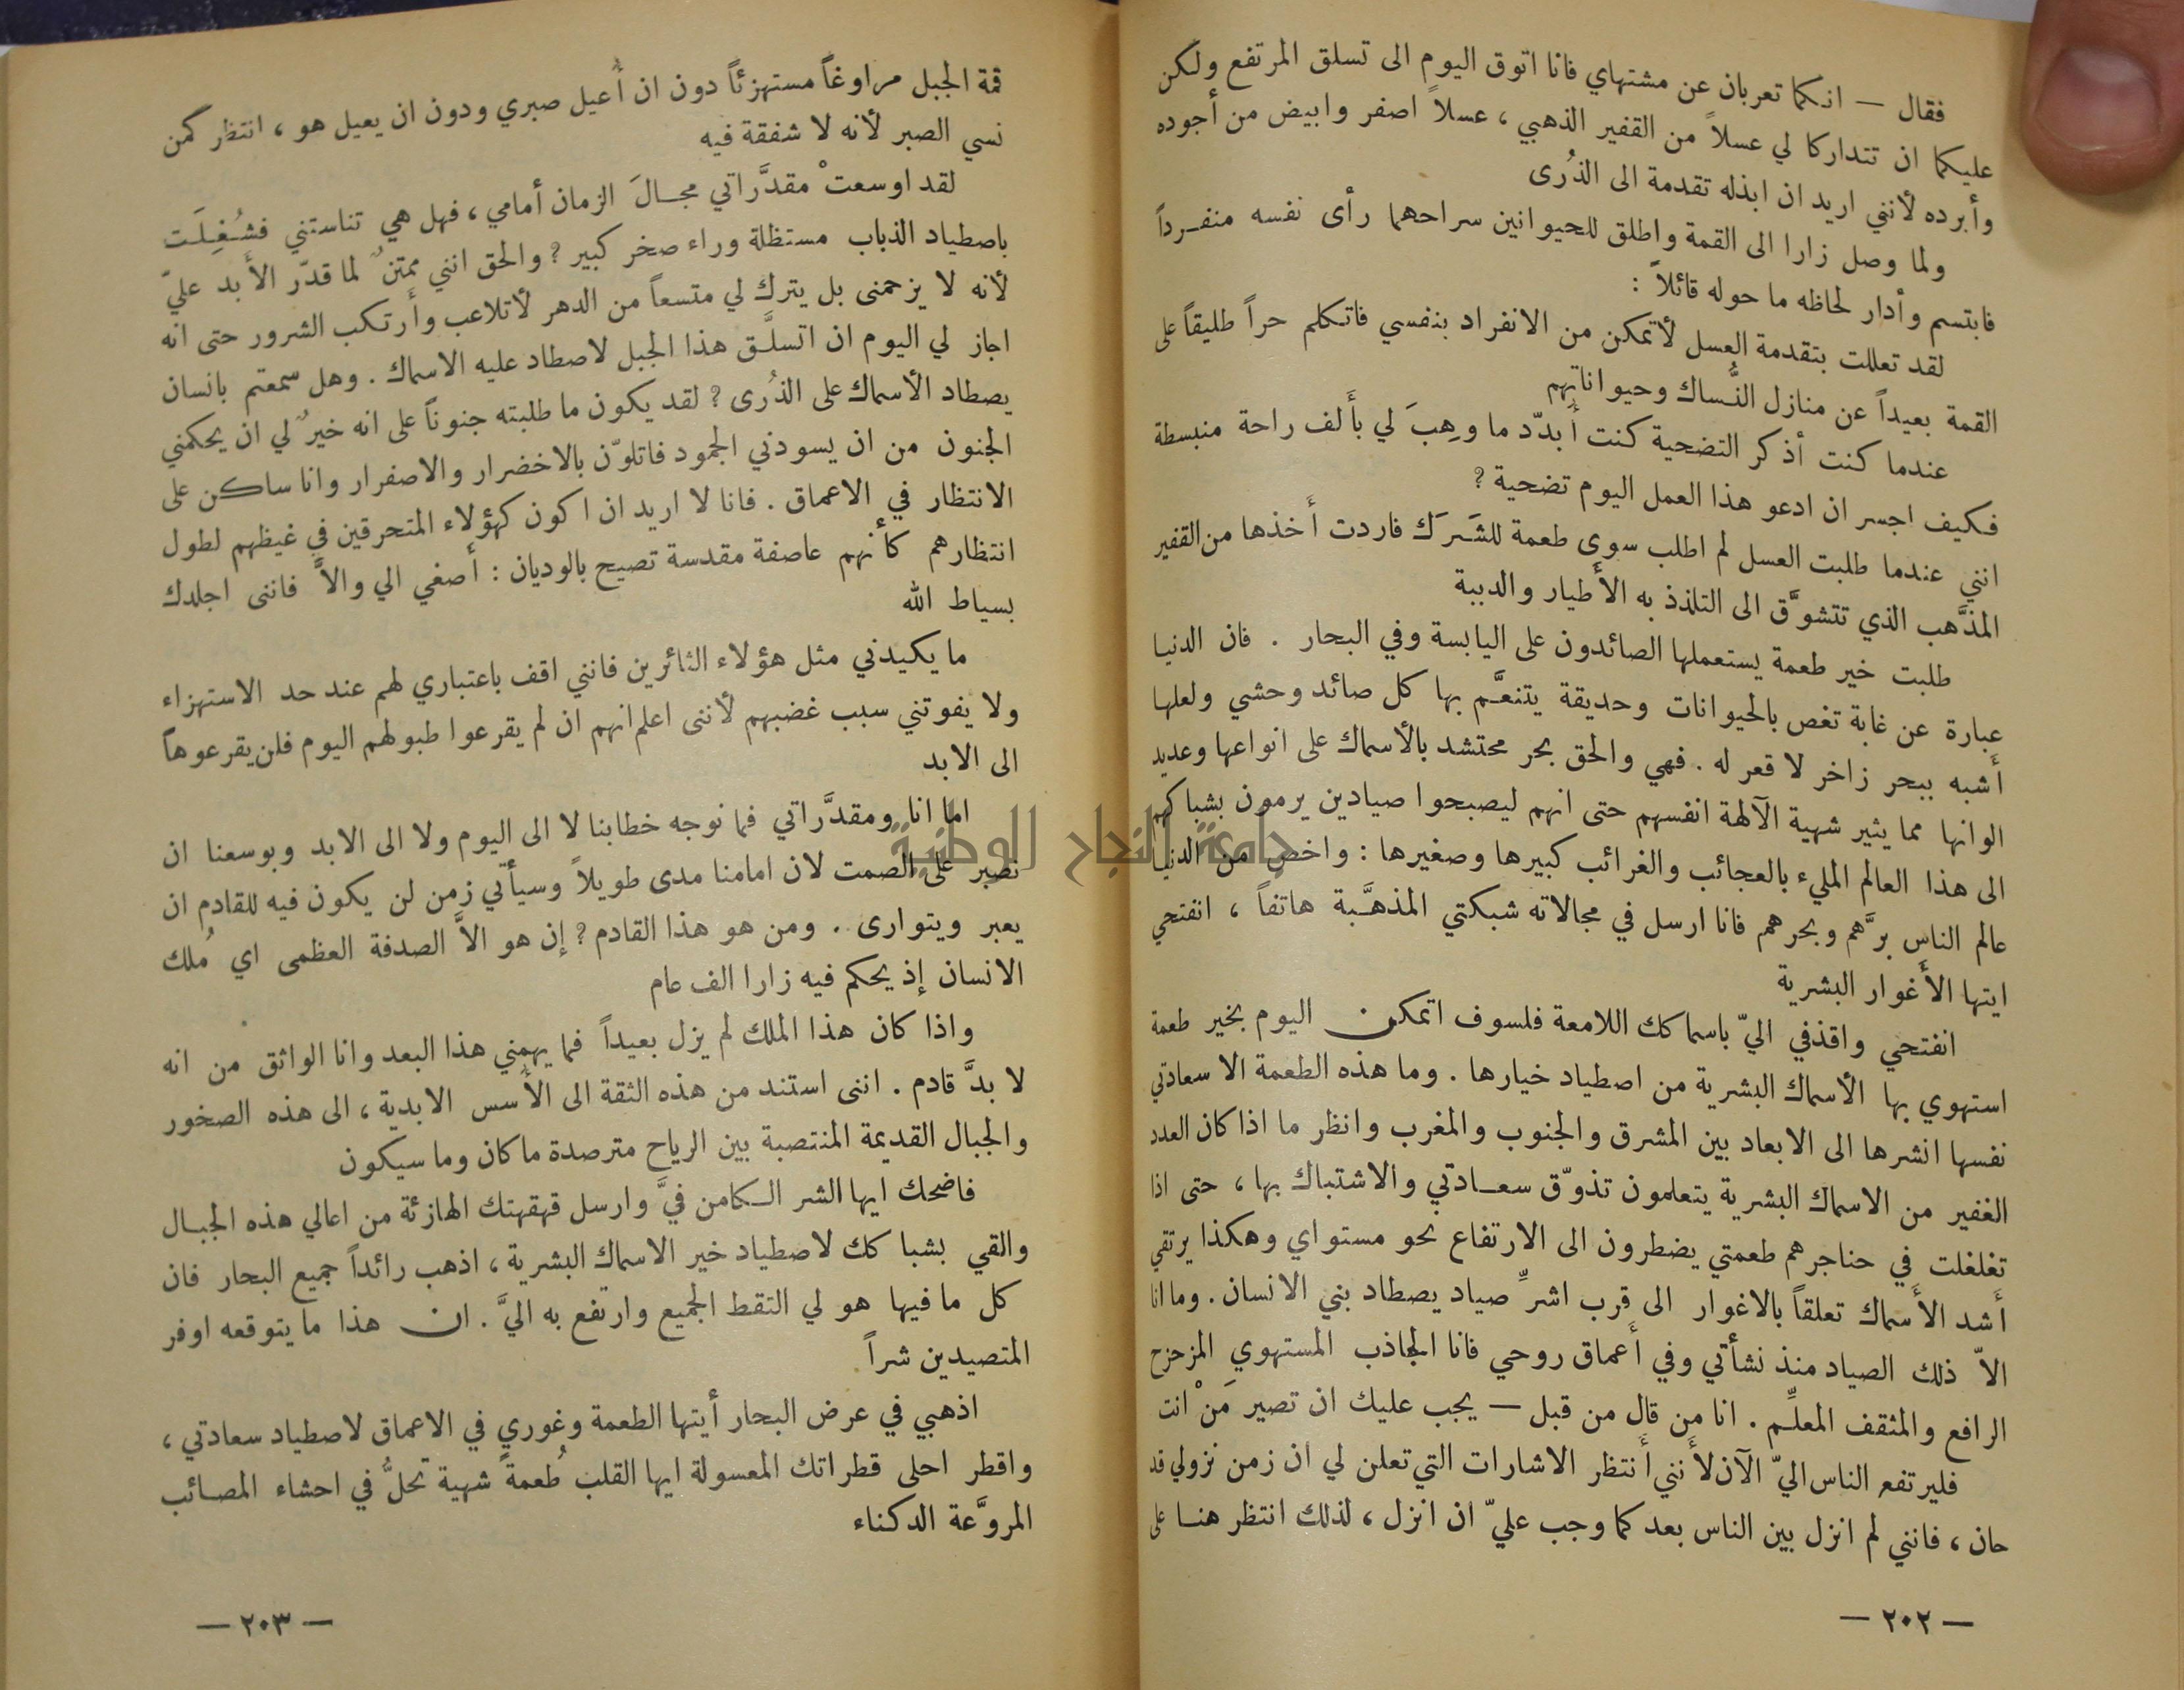 فقال — انكما تعربان عن مشتهاي فانا اتوق اليوم الى تسلق المرتفع ولكن
عليكما ان تتداركا لي عسلاً من القفير الذهبي ، عسلاً اصفر وابيض من أجوده
وأبرده لأنني اريد ان ابذله تقدمة الى الذُرى
ولما وصل زارا الى القمة واطلق للحيوانين سراحهما رأى نفسه منفرداً
فابتسم وأدار لحاظه ما حوله قائلاً :
لقد تعللت بتقدمة العسل لأتمكن من الانفراد بنفسي فاتكلم حراً طليقاً على
القمة بعيداً عن منازل النُّساك وحيواناتهم
عندما كنت أذكر التضحية كنت أبدّد ما وهِبَ لي بألف راحة منبسطة
فكيف اجسر ان ادعو هذا العمل اليوم تضحية ?
انني عندما طلبت العسل لم اطلب سوى طعمة للشَرَك فاردت أخذها من القفير
المذَّهب الذي تتشوَّق الى التلذذ به الأطيار والدببة
طلبت خير طعمة يستعملها الصائدون على اليابسة وفي البحار . فان الدنيا
عبارة عن غابة تغص بالحيوانات وحديقة يتنعَّم بها كل صائد وحشي ولعلها
أشبه ببحر زاخر لا قعر له . فهي والحق بحر محتشد بالأسماك على انواعها وعديد
الوانها مما يثير شهية الآلهة انفسهم حتى انهم ليصبحوا صيادين يرمون بشباكهم
الى هذا العالم المليء بالعجائب والغرائب كبيرها وصغيرها : واخص من الدنيا
عالم الناس برَّهم وبحرهم فانا ارسل في مجالاته شبكتي المذهَّبة هاتفاً ، انفتحي
ايتها الأغوار البشرية
انفتحي واقذفي اليّ باسماكك اللامعة فلسوف اتمكن اليوم بخير طعمة
استهوي بها الأسماك البشرية من اصطياد خيارها . وما هذه الطعمة الا سعادتي
نفسها انشرها الى الابعاد بين المشرق والجنوب والمغرب وانظر ما اذا كان العدد
الغفير من الاسماك البشرية يتعلمون تذوّق سعادتي والاشتباك بها ، حتى اذا
تغلغلت في حناجرهم طعمتي يضطرون الى الارتفاع نحو مستواي وهكذا يرتقي
أشد الأسماك تعلقاً بالاغوار الى قرب اشرِّ صياد يصطاد بني الانسان . وما انا
الاّ ذلك الصياد منذ نشأتي وفي أعماق روحي فانا الجاذب المستهوي المزحزح
الرافع والمثقف المعلِّم . انا من قال من قبل — يجب عليك ان تصير مَنْ انت
فليرتفع الناس اليّ الآن لأنني أنتظر الاشارات التي تعلن لي ان زمن نزولي قد
حان ، فانني لم انزل بين الناس بعد كما وجب عليّ ان انزل ، لذلك انتظر هنا على
— ٢٠٢ —
قمة الجبل مراوغاً مستهزئاً دون ان أُعيل صبري ودون ان يعيل هو ، انتظر كمن
نسي الصبر لأنه لا شفقة فيه
لقد اوسعتْ مقدَّراتي مجالَ الزمان أمامي ، فهل هي تناستني فشُغِلَت
باصطياد الذباب مستظلة وراء صخر كبير ? والحق انني ممتنٌ لما قدّر الأبد عليّ
لأنه لا يزحمني بل يترك لي متسعاً من الدهر لأتلاعب وأرتكب الشرور حتى انه
اجاز لي اليوم ان اتسلَّق هذا الجبل لاصطاد عليه الاسماك . وهل سمعتم بانسان
يصطاد الأسماك على الذُرى ? لقد يكون ما طلبته جنوناً على انه خيرٌ لي ان يحكمني
الجنون من ان يسودني الجمود فاتلوّن بالاخضرار والاصفرار وانا ساكن على
الانتظار في الاعماق . فانا لا اريد ان اكون كهؤلاء المتحرقين في غيظهم لطول
انتظارهم كأنهم عاصفة مقدسة تصيح بالوديان : أصغي الي والاَّ فانني اجلدك
بسياط الله
ما يكيدني مثل هؤلاء الثائرين فانني اقف باعتباري لهم عند حد الاستهزاء
ولا يفوتني سبب غضبهم لأنني اعلم انهم ان لم يقرعوا طبولهم اليوم فلن يقرعوها
الى الابد
اما انا ومقدَّراتي فما نوجه خطابنا لا الى اليوم ولا الى الابد وبوسعنا ان
نصبر على الصمت لان امامنا مدى طويلاً وسيأتي زمن لن يكون فيه للقادم ان
يعبر ويتوارى . ومن هو هذا القادم ? إن هو الاَّ الصدفة العظمى اي مُلك
الانسان إذ يحكم فيه زارا الف عام
واذا كان هذا الملك لم يزل بعيداً فما يهمني هذا البعد وانا الواثق من انه
لا بدَّ قادم . انني استند من هذه الثقة الى الأسس الابدية ، الى هذه الصخور
والجبال القديمة المنتصبة بين الرياح مترصدة ما كان وما سيكون
فاضحك ايها الشر الكامن فيَّ وارسل قهقهتك الهازئة من اعالي هذه الجبال
والقي بشباكك لاصطياد خير الاسماك البشرية ، اذهب رائداً جميع البحار فان
كل ما فيها هو لي التقط الجميع وارتفع به اليَّ . ان هذا ما يتوقعه اوفر
المتصيدين شراً
اذهبي في عرض البحار أيتها الطعمة وغوري في الاعماق لاصطياد سعادتي ،
واقطر احلى قطراتك المعسولة ايها القلب طُعمةً شهية تحلُّ في احشاء المصائب
المروَّعة الدكناء
— ٢٠٣ —
جامعة النجاح الوطنية